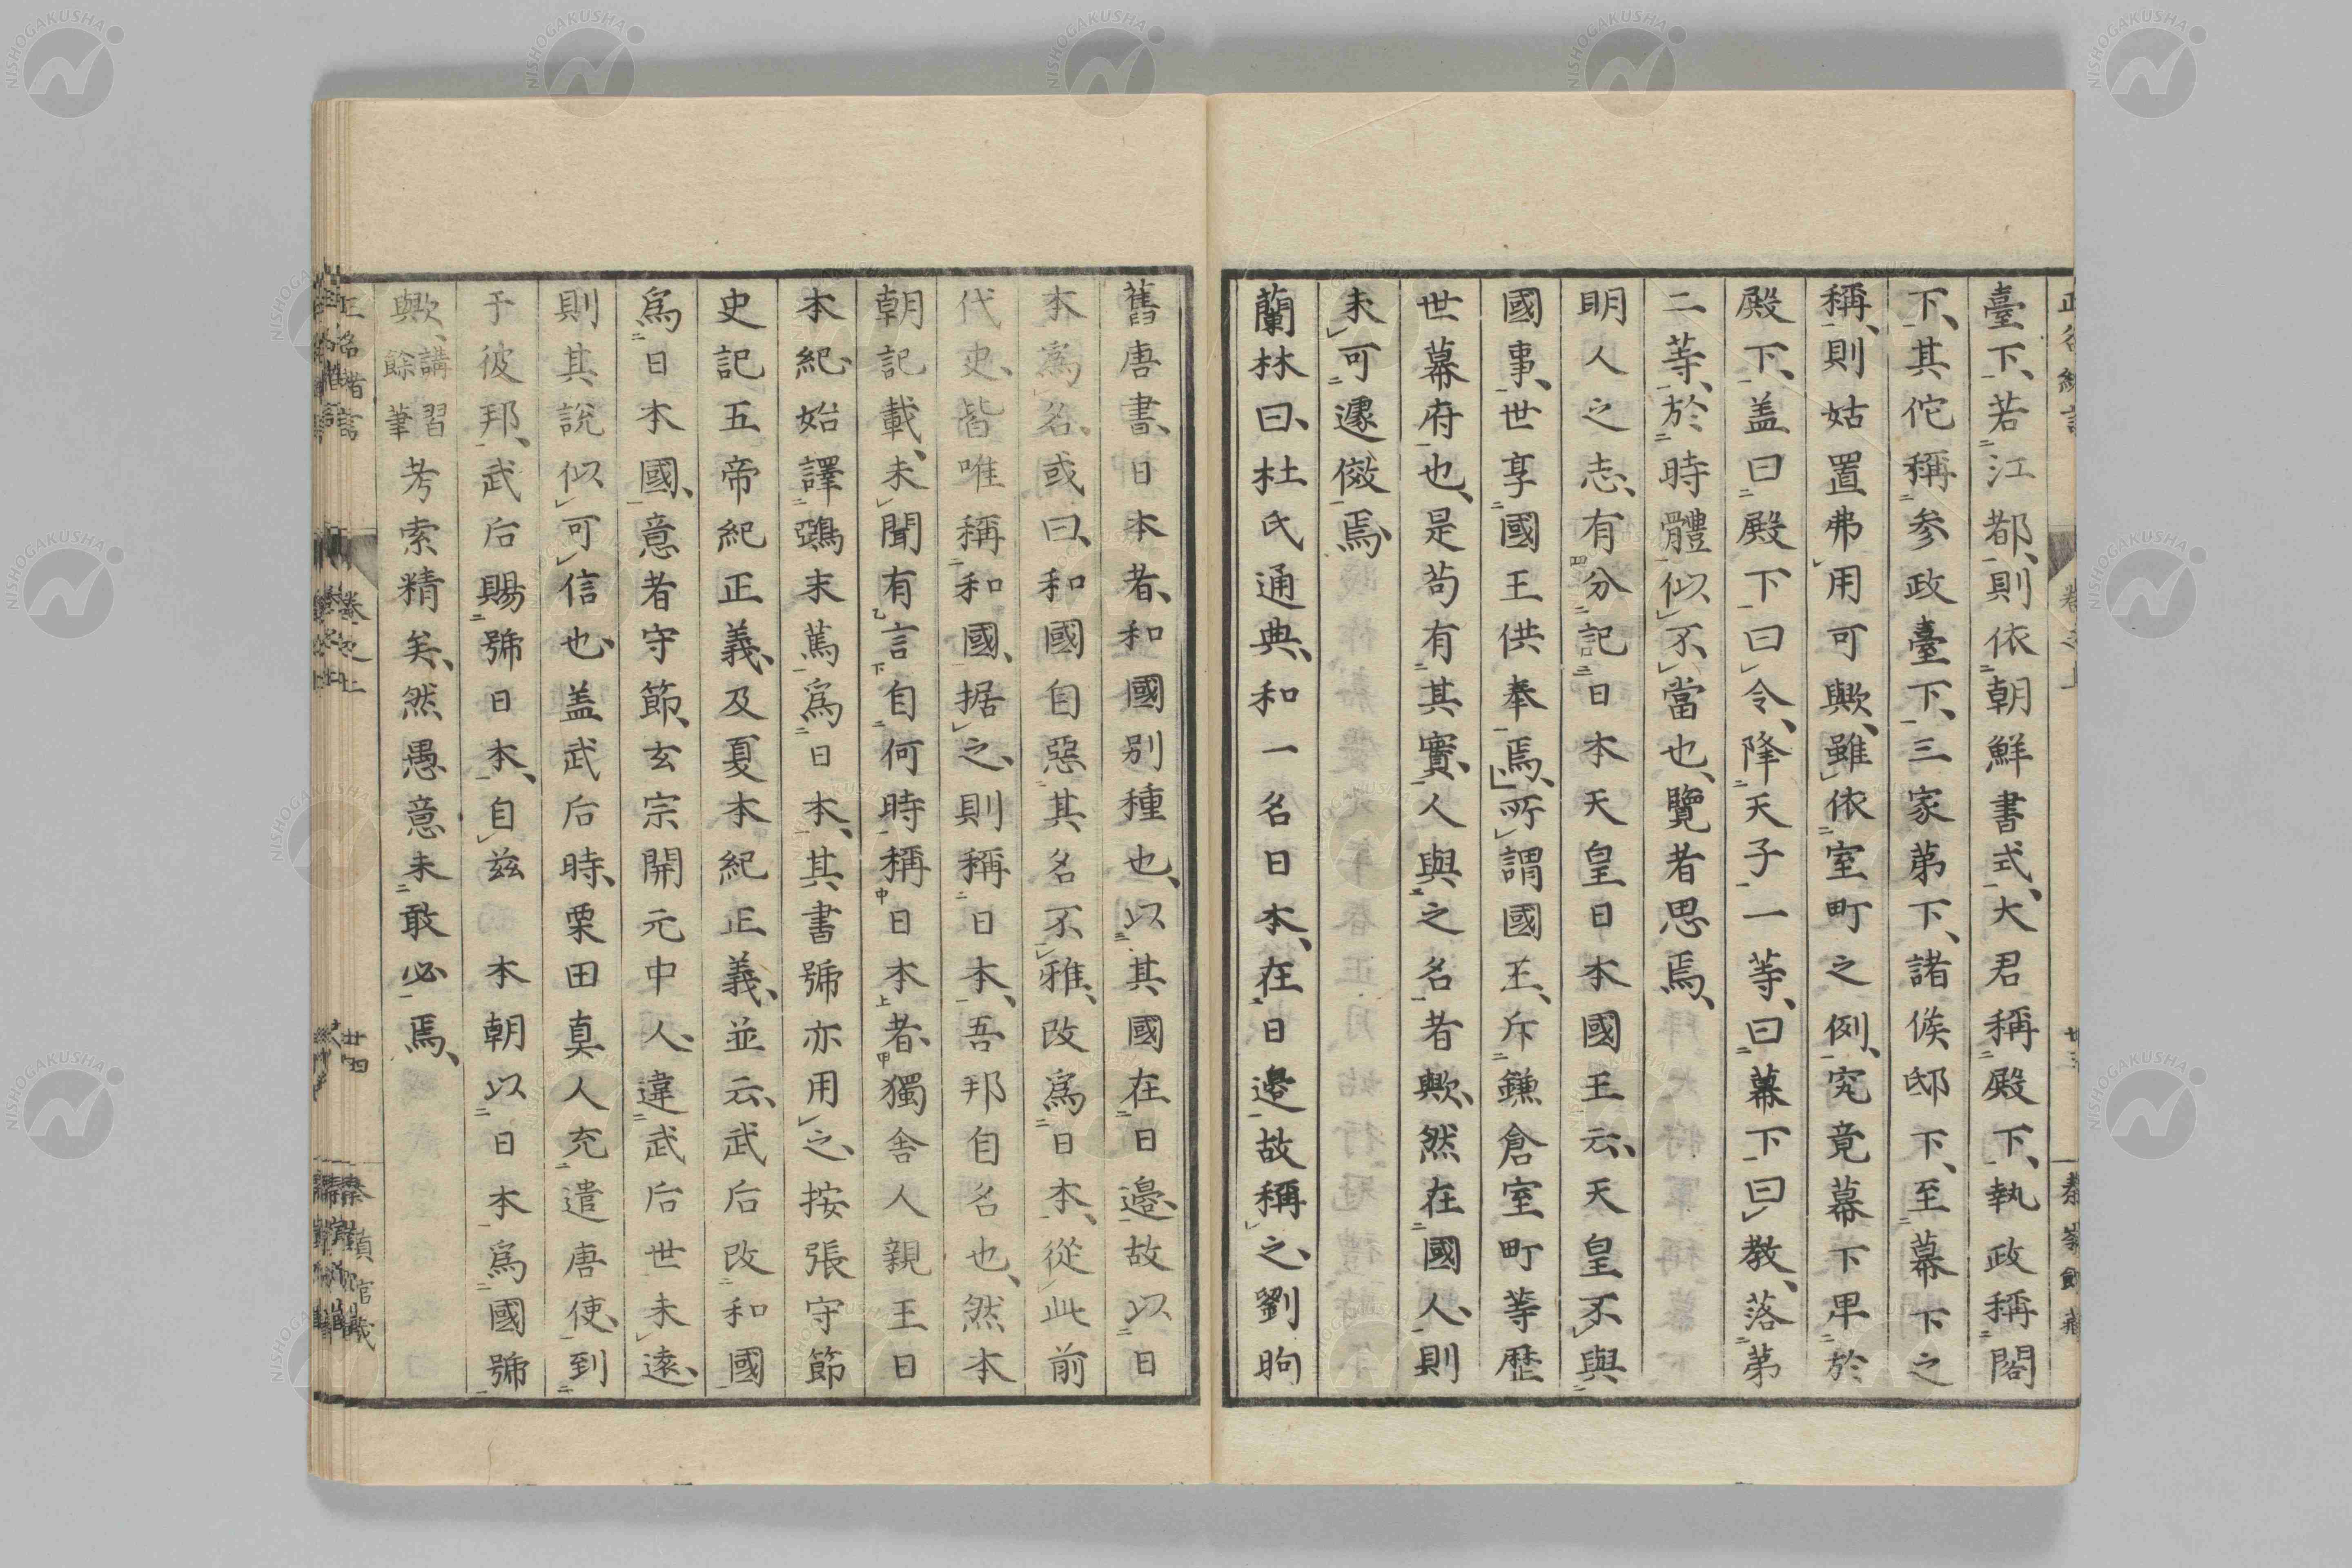 臺下、若江都、則依朝鮮書式、大君稱殿下、執政稱閣
下、其佗稱參政臺下、三家第下、諸侯邸下、至幕下之
稱、則姑置弗用可歟、雖依室町之例、究竟幕下卑於
殿下、盖曰殿下曰令、降天子一等、曰幕下曰教、落第
二等、於時體似不當也、覽者思焉、
明人之志、有分記日本天皇日本國王云、天皇不與
國事、世享國王供奉焉、所謂國王、斥鎌倉室町等歴
世幕府也、是苟有其實、人與之名者歟、然在國人、則
未可遽倣焉、
蘭林曰、杜氏通典、和一名日本、在日邉故稱之、劉昫
舊唐書、日本者、和國別種也、以其國在日邉、故以日
本爲名、或曰、和國自惡其名不雅、改爲日本、從此前
代史、皆唯稱和國、据之、則稱日本、吾邦自名也、然本
朝記載、未聞有言自何時稱日本者、獨舎人親王日
本紀、始譯鵶末蔦爲日本、其書號亦用之、按張守節
史記五帝紀正義、及夏本紀正義、並云、武后改和國
爲日本國、意者守節、玄宗開元中人、違武后世未遠、
則其說似可信也、盖武后時、栗田真人充遣唐使、到
于彼邦、武后賜號日本、自茲　本朝以日本爲國號
歟、講習餘筆考索精矣、然愚意未敢必焉、
正名緒言　卷之上　廿四